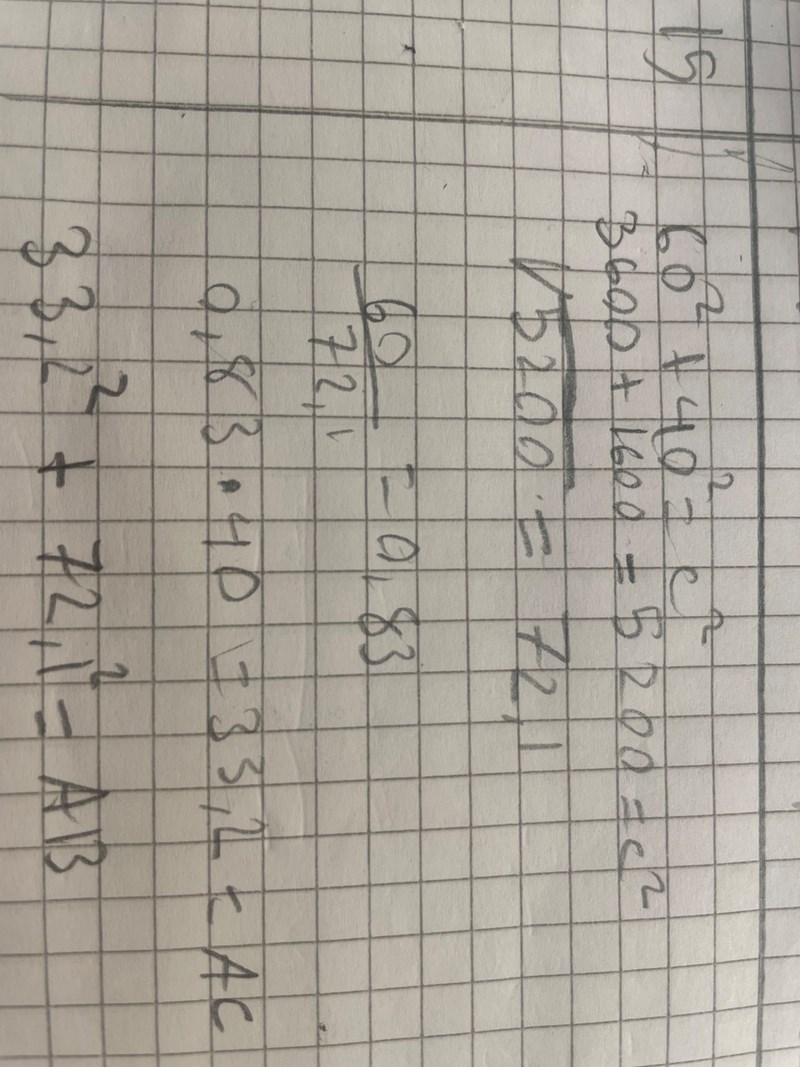 15
60² + 40² = c²
3600 + 1600 = 5200 = c²
√5200 = 72,1
60/72,1 = 0,83
0,83 • 40 = 33,2 = AC
33,2² + 72,1² = AB